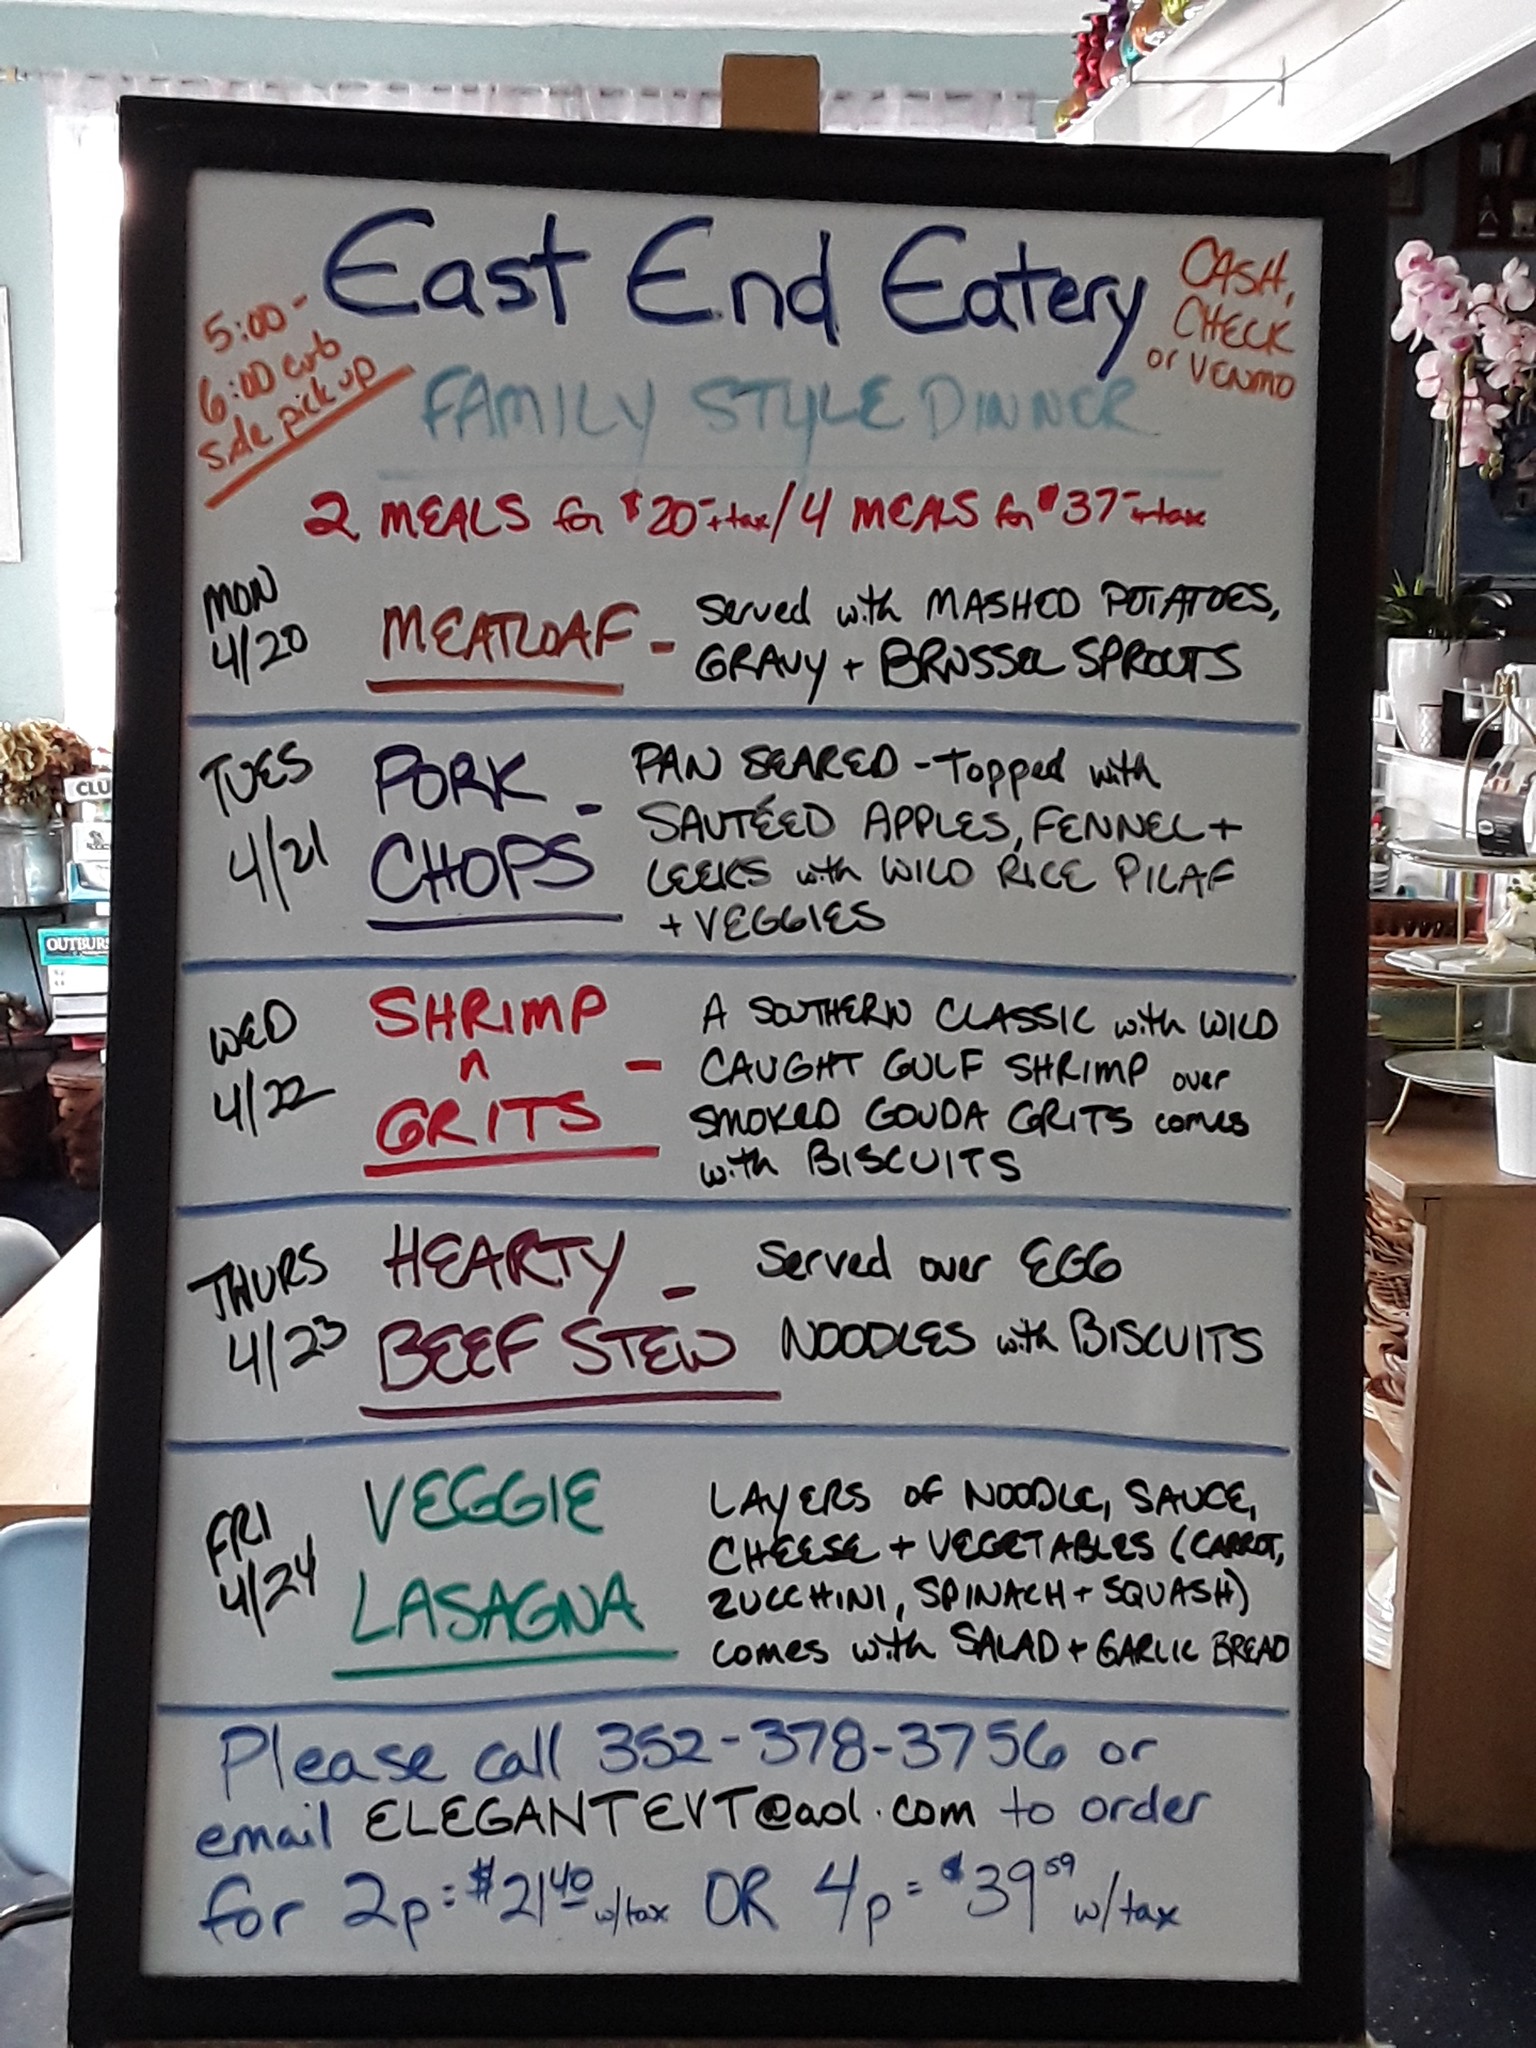 East End Eatery
5:00 -
6:00 curb
side pick up
CASH,
CHECK
or VENMO
FAMILY STYLE DINNER
2 MEALS for $20- + tax / 4 MEALS for $37- + tax
MON
4/20
MEATLOAF -
Served with MASHED POTATOES,
GRAVY + BRUSSEL SPROUTS
TUES
4/21
PORK -
CHOPS
PAN SEARED - Topped with
SAUTÉED APPLES, FENNEL +
LEEKS with WILD RICE PILAF
+ VEGGIES
WED
4/22
SHRIMP
n -
GRITS
A SOUTHERN CLASSIC with WILD
CAUGHT GULF SHRIMP over
SMOKED GOUDA GRITS comes
with BISCUITS
THURS
4/23
HEARTY -
BEEF STEW
Served over EGG
NOODLES with BISCUITS
FRI
4/24
VEGGIE
LASAGNA
LAYERS OF NOODLE, SAUCE,
CHEESE + VEGETABLES (CARROT,
ZUCCHINI, SPINACH + SQUASH)
comes with SALAD + GARLIC BREAD
Please call 352-378-3756 or
email ELEGANTEVT@aol.com to order
for 2p = $21.40 w/tax OR 4p = $39.59 w/tax
CLU
OUTBURS